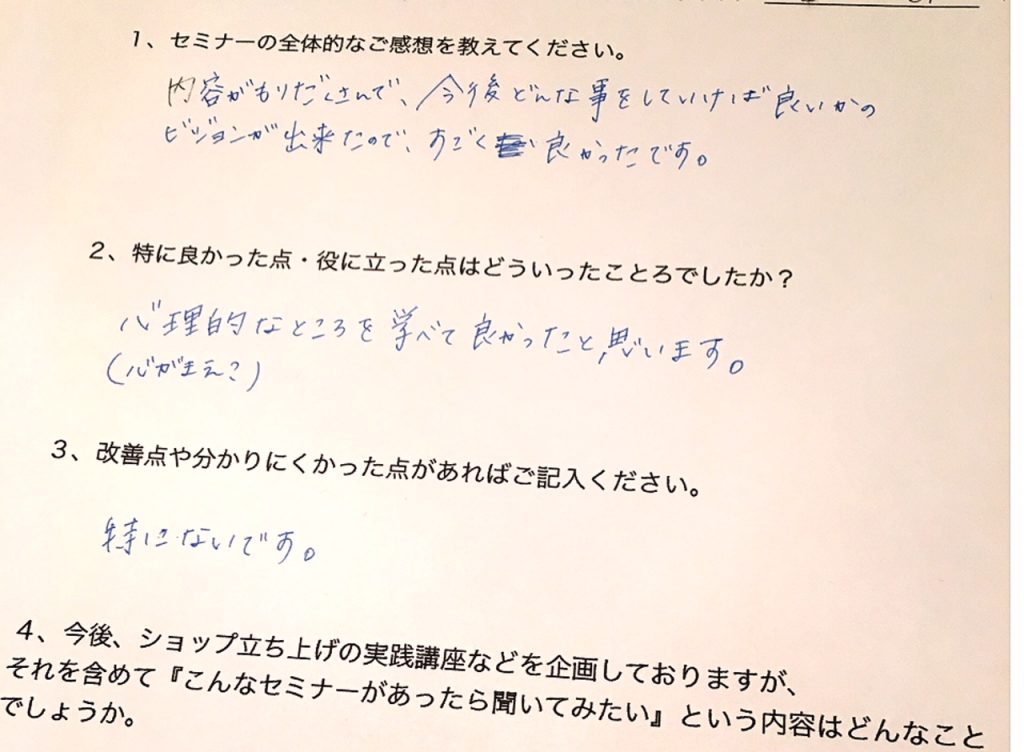 1、セミナーの全体的なご感想を教えてください。
内容がもりだくさんで、今後どんな事をしていけば良いかの
ビジョンが出来たので、すごく良かったです。
2、特に良かった点・役に立った点はどういったことろでしたか？
心理的なところを学べて良かったと思います。
(心がまえ?)
3、改善点や分かりにくかった点があればご記入ください。
特にないです。
4、今後、ショップ立ち上げの実践講座などを企画しておりますが、
それを含めて『こんなセミナーがあったら聞いてみたい』という内容はどんなこと
でしょうか。